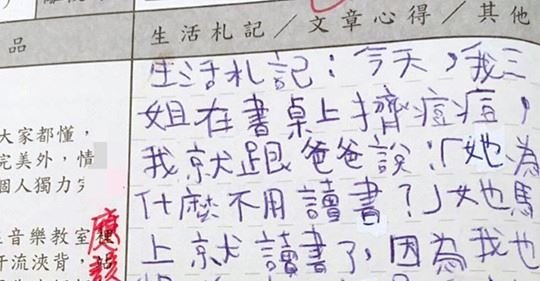 生活札記／文章心得／其他
品
生活札記：今天，我三
姐在書桌上擠痘痘，
我就跟爸爸說：「她為
什麼不用讀書？」她馬
上就讀書了，因為我也
大家都懂，
完美外，情
個人獨力完
音樂教室裡
汗流浹背，
應該